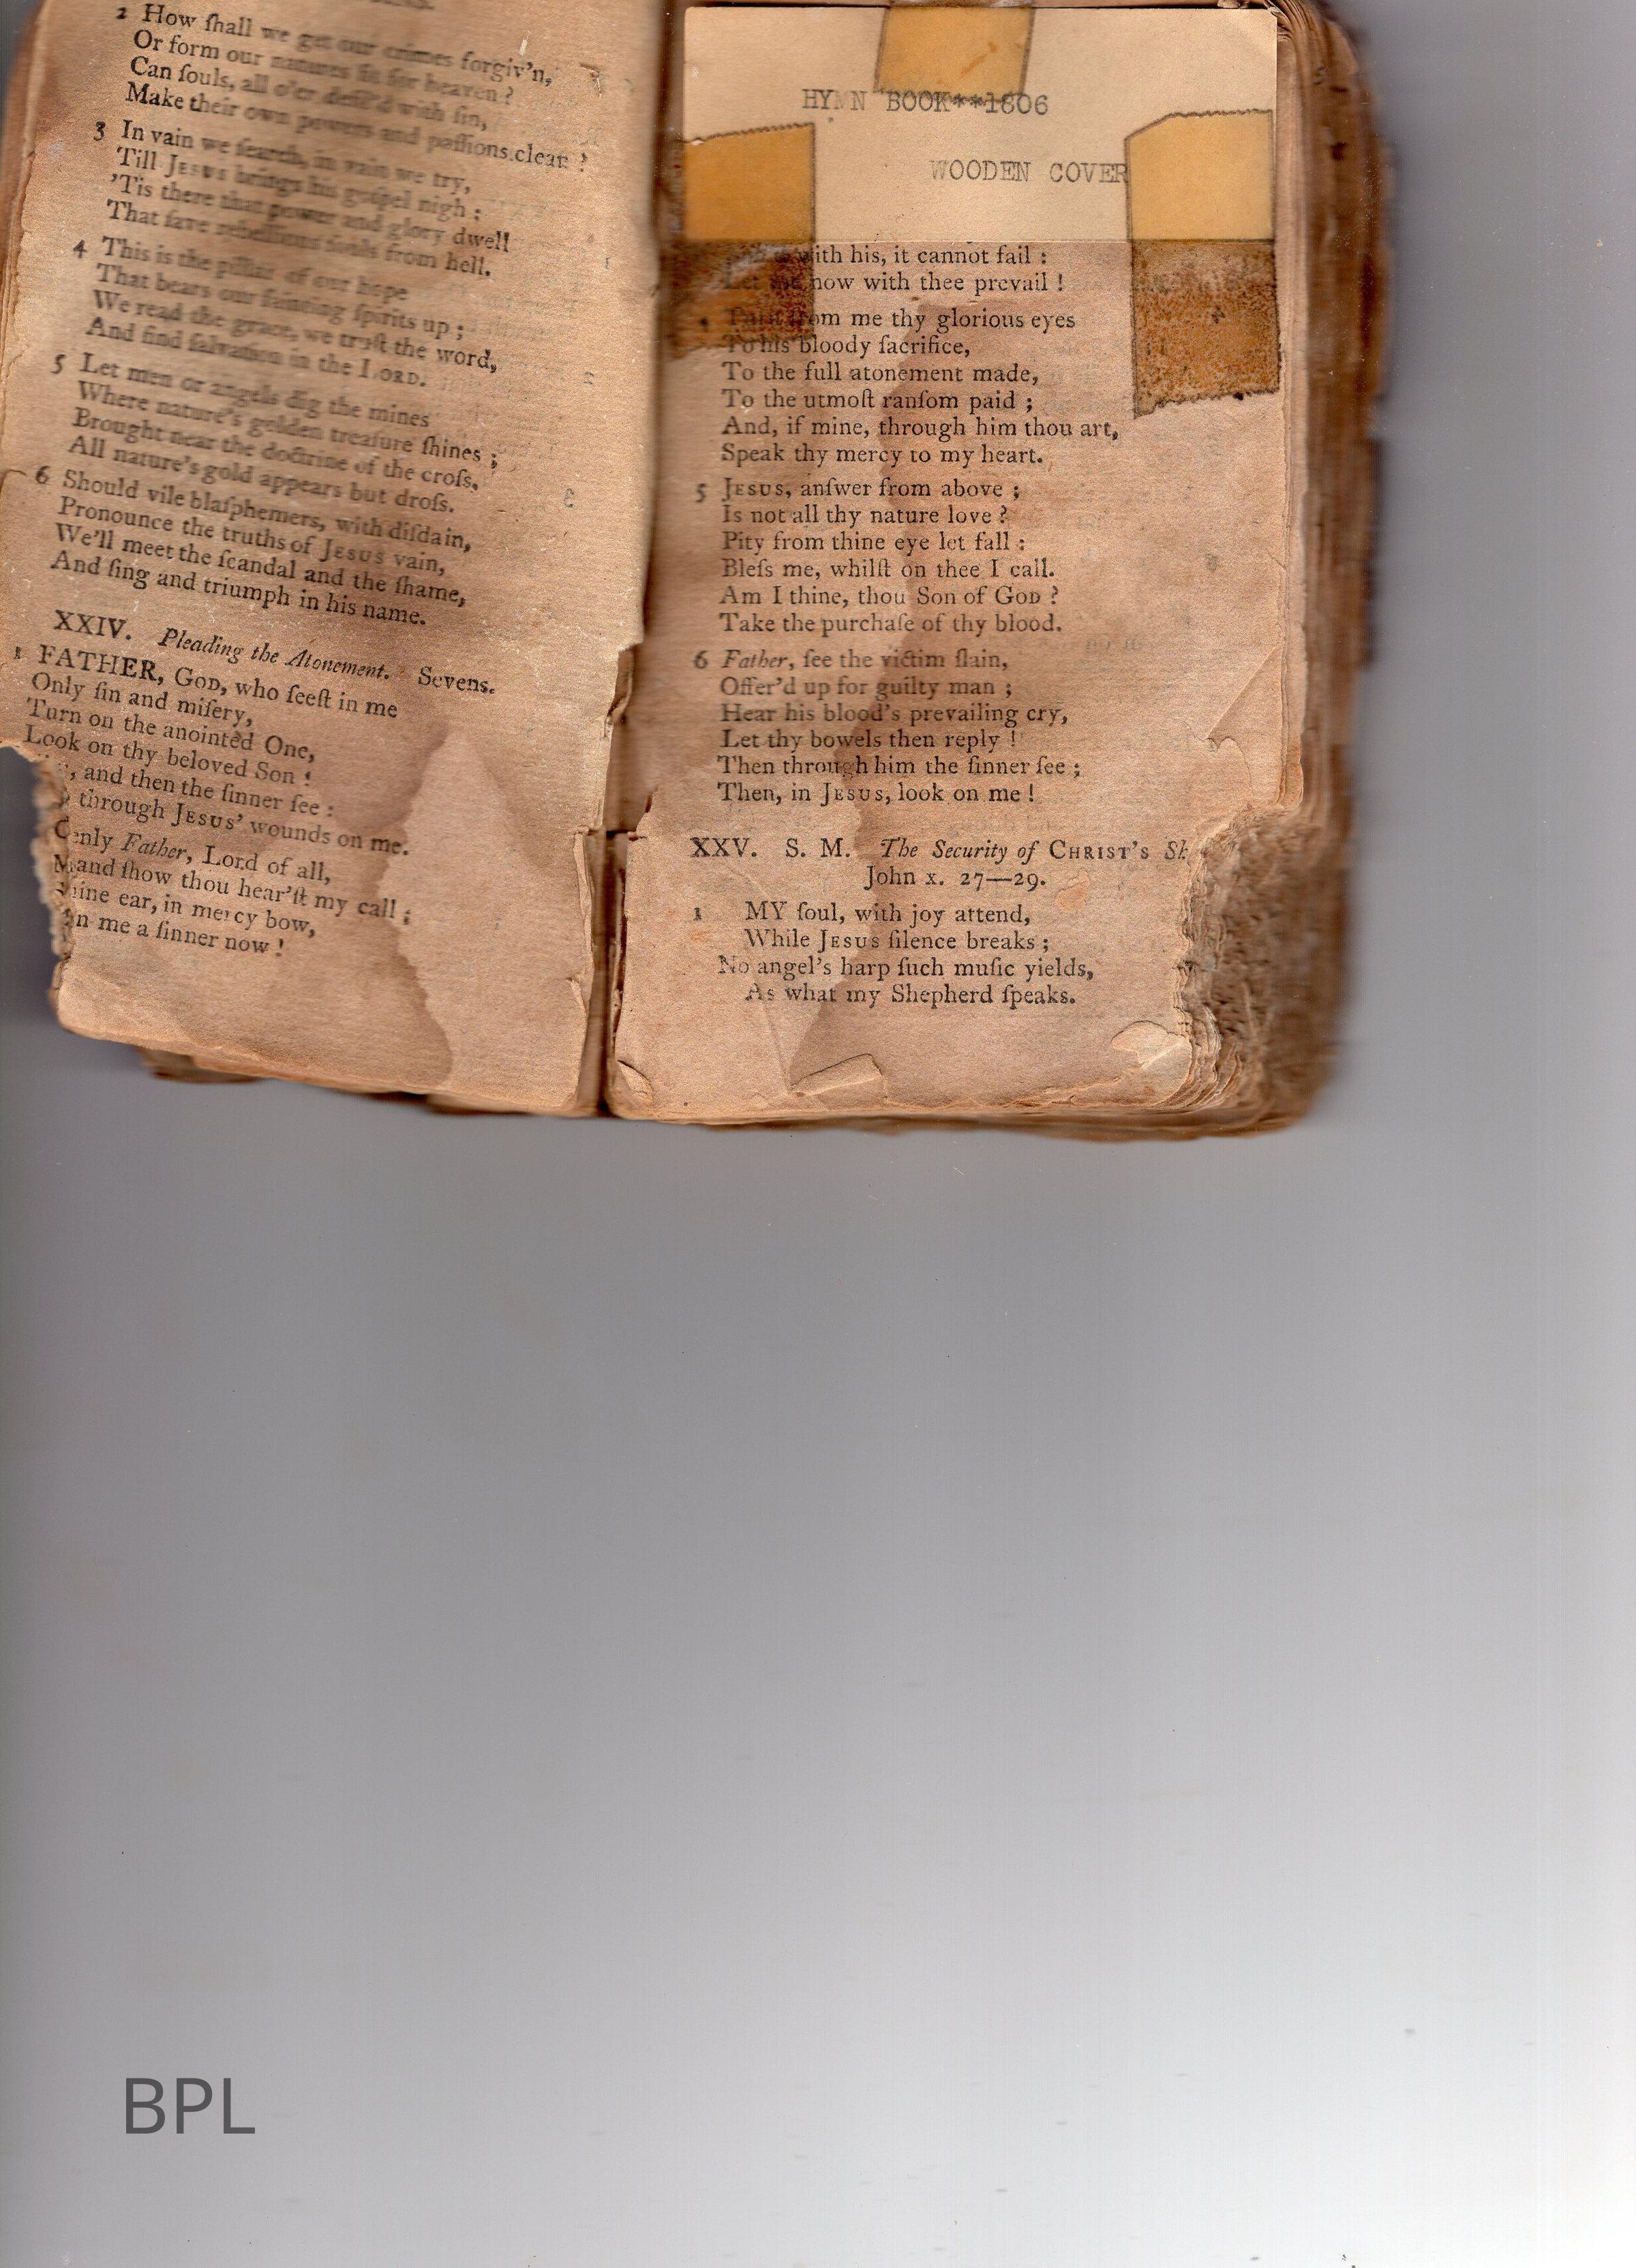 2 How ſhall we get our crimes forgiv'n,
Or form our natures fit for heaven?
Can ſouls, all o'er defil'd with ſin,
Make their own powers and paſſions clean?
3 In vain we ſearch, in vain we try,
Till JESUS brings his goſpel nigh:
'Tis there that power and glory dwell
That ſave rebellious ſouls from hell.
4 This is the pillar of our hope
That bears our fainting ſpirits up;
We read the grace, we truſt the word,
And find ſalvation in the LORD.
5 Let men or angels dig the mines
Where nature's golden treaſure ſhines;
Brought near the doctrine of the croſs,
All nature's gold appears but droſs.
6 Should vile blaſphemers, with diſdain,
Pronounce the truths of JESUS vain,
We'll meet the ſcandal and the ſhame,
And ſing and triumph in his name.
XXIV. Pleading the Atonement. Sevens.
1 FATHER, GOD, who ſeeſt in me
Only ſin and miſery,
Turn on the anointed One,
Look on thy beloved Son:
, and then the ſinner ſee:
through JESUS' wounds on me.
Father, Lord of all,
and ſhow thou hear'ſt my call;
ear, in mercy bow,
me a ſinner now!
HYMN BOOK**1806
WOODEN COVER
with his, it cannot fail:
now with thee prevail!
from me thy glorious eyes
To his bloody ſacrifice,
To the full atonement made,
To the utmoſt ranſom paid;
And, if mine, through him thou art,
Speak thy mercy to my heart.
5 JESUS, anſwer from above;
Is not all thy nature love?
Pity from thine eye let fall:
Bleſs me, whilſt on thee I call.
Am I thine, thou Son of GOD?
Take the purchaſe of thy blood.
6 Father, ſee the victim ſlain,
Offer'd up for guilty man;
Hear his blood's prevailing cry,
Let thy bowels then reply!
Then through him the ſinner ſee;
Then, in JESUS, look on me!
XXV. S. M. The Security of CHRIST'S
John x. 27—29.
1 MY ſoul, with joy attend,
While JESUS ſilence breaks;
No angel's harp ſuch muſic yields,
As what my Shepherd ſpeaks.
BPL